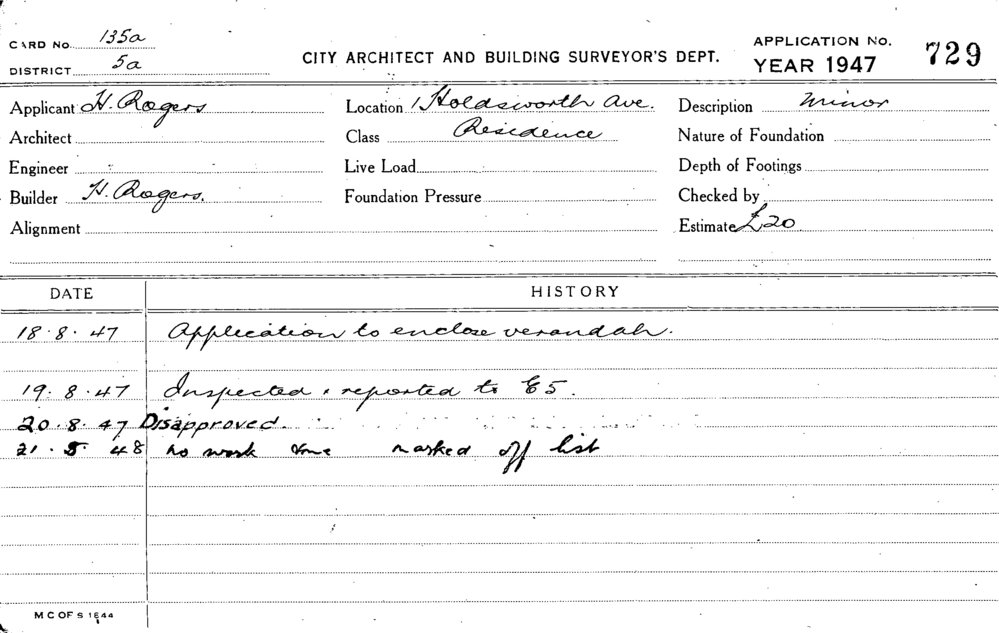 CARD No. 135a
DISTRICT 5a
CITY ARCHITECT AND BUILDING SURVEYOR'S DEPT.
APPLICATION No. 729
YEAR 1947
Applicant H. Rogers Location 1 Holdsworth Ave. Description Minor
Architect Class Residence Nature of Foundation
Engineer Live Load Depth of Footings
Builder H. Rogers. Foundation Pressure Checked by
Alignment Estimate £20
DATE HISTORY
18.8.47 Application to enclose verandah.
19.8.47 Inspected & reported to
20.8.47 Disapproved.
21.5.48 no work done marked off list
M C OF S